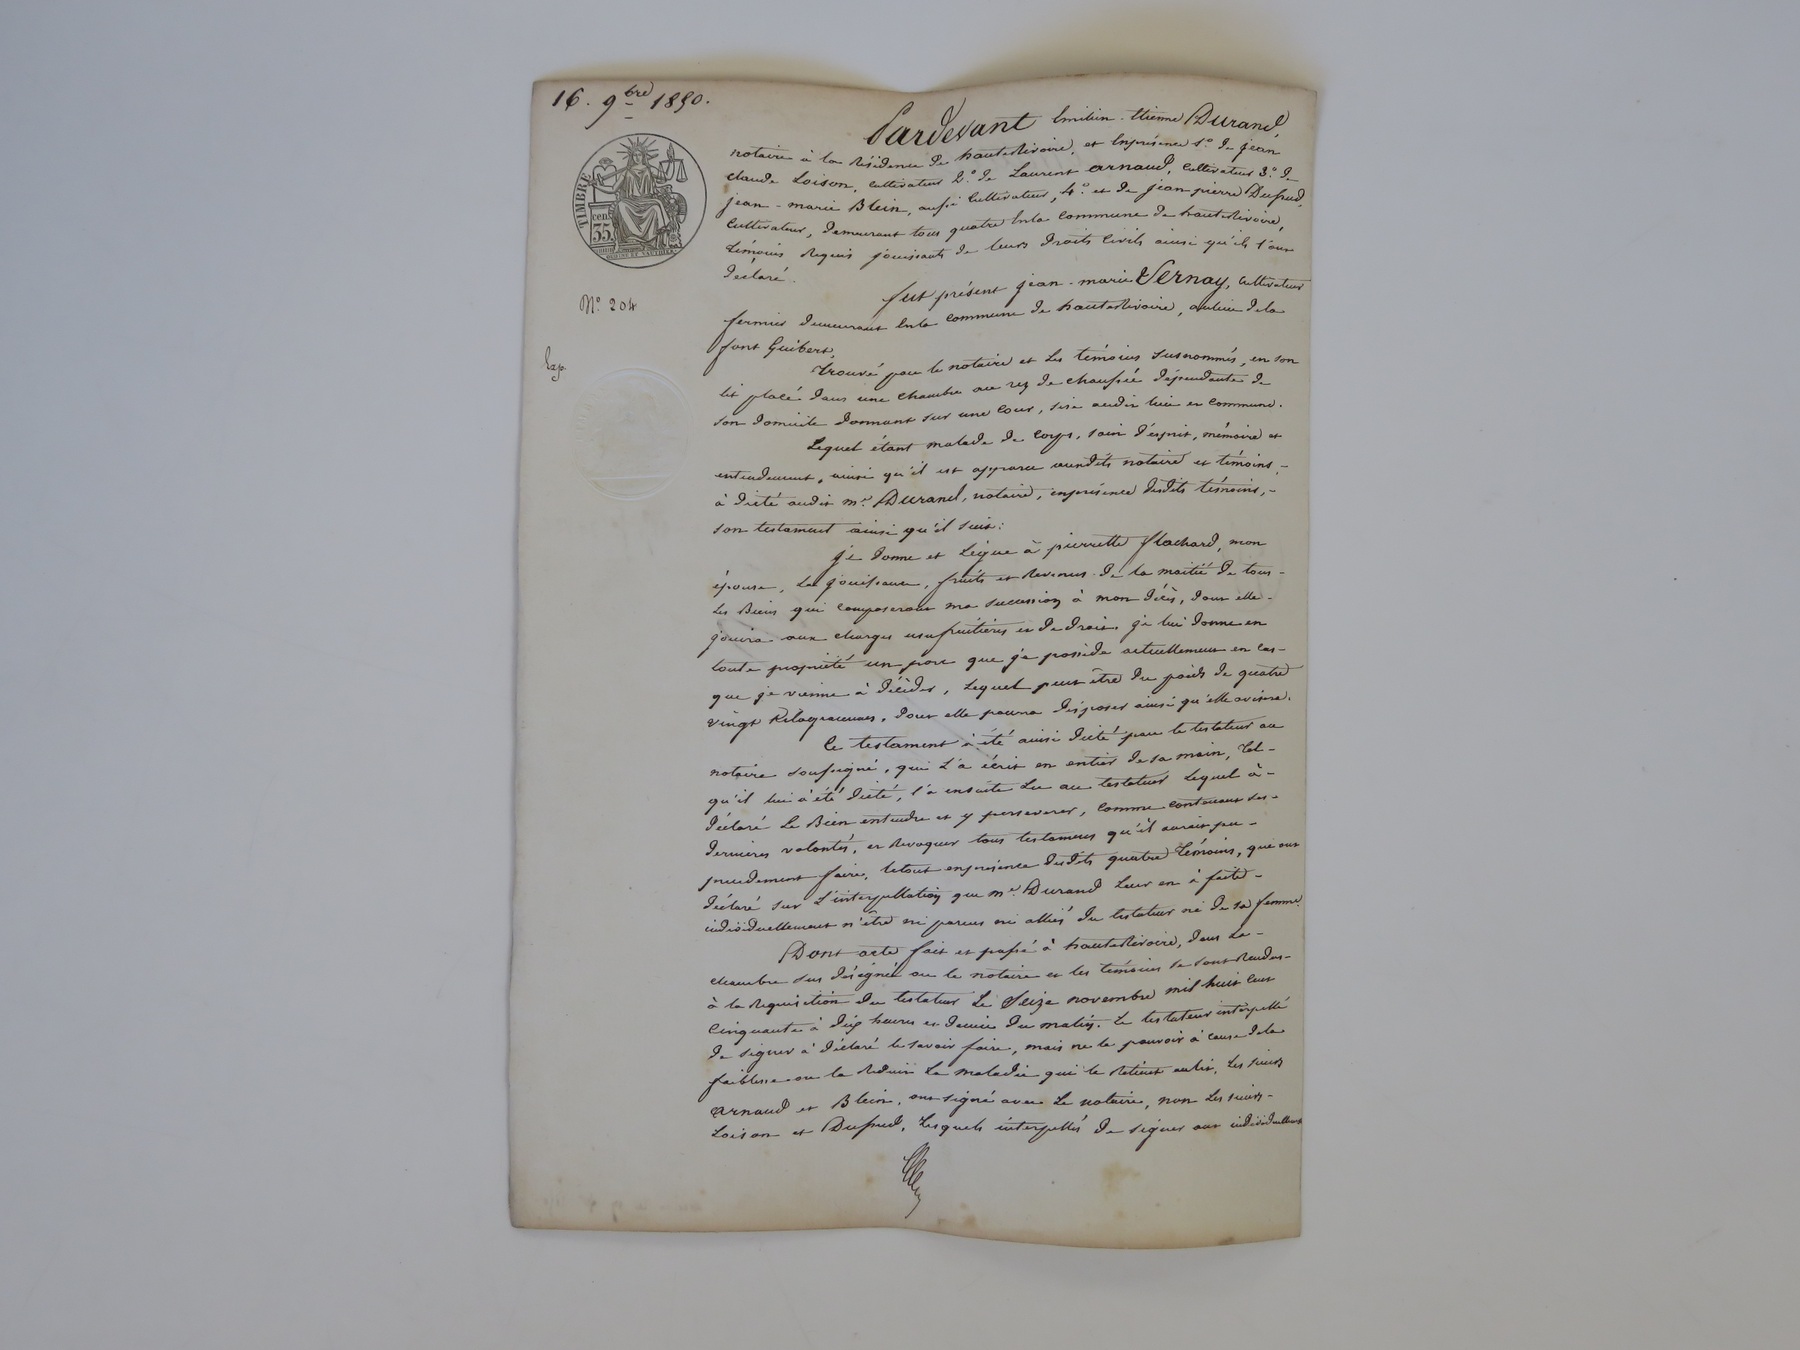 16. 9bre 1850.
TIMBRE
cen
35
N° 204
Exp.
Pardevant Emilien Etienne Durand,
notaire à la résidence de hauterivoire, et Enprésence 1° de jean
claude Loison, cultivateur 2° de Laurent arnaud, cultivateur 3° de
jean-marie Blein, aussi cultivateur, 4° et de jean pierre Dupud,
cultivateur, demeurant tous quatre Enla commune de hauterivoire,
témoins requis jouissants de leurs droits civils ainsi qu'ils l'ont
déclaré.
fut présent jean-marie Vernay, cultivateur
fermier demeurant Enla commune de hauterivoire, aulieu dela
font Guibert,
trouvé par le notaire et les témoins susnommés, en son
lit placé dans une chambre au rez de chaussée dépendante de
son domicile donnant sur une cour, sise audit lieu et commune.
Lequel étant malade de corps, sain d'esprit, mémoire et
entendement, ainsi qu'il est apparu auxdits notaire et témoins,
à dicté audit me Durand, notaire, enprésence desdits témoins,
son testament ainsi qu'il suit:
je donne et Lègue à pierrette flachard, mon
épouse, La jouissance, fruits et revenus de la moitié de tous
les Biens qui composeront ma sucession à mon décès, dont elle
jouira aux charges usufruitières et de droit. je lui donne en
toute propriété un porc que je possède actuellement en cas
que je vienne à décéder, Lequel peut être du poids de quatre
vingt Kilogrammes, dont elle pourra disposer ainsi qu'elle avisera.
Ce testament à été ainsi dicté par le testateur au
notaire soussigné, qui L'a écrit en entier de sa main, tel
qu'il lui à été dicté, l'a ensuite Lu au testateur Lequel à
déclaré Le Bien entendre et y perseverer, comme contenant ses
dernières volontés, et revoquer tous testamens qu'il aurait pu
précédemment faire, letout enprésence desdits quatre témoins, qui ont
déclaré sur L'interpellation que me Durand Leur en à faite
individuellement n'être ni parens ni alliés du testateur ni de sa femme.
Dont acte fait et passé à hauterivoire, dans La
chambre sus désignée ou le notaire et les témoins se sont rendus
à la requisition du testateur Le Seize novembre mil huit cent
cinquante à dix heures et demie du matin. Le testateur interpellé
de signer à déclaré le savoir faire, mais ne le pouvoir à cause dela
faiblesse ou la réduit La maladie qui le retient aulit, Les sieurs
arnaud et Blein, ont signé avec Le notaire, non Les sieurs
Loison et Dupud, Lesquels interpellés de signer ont individuellement